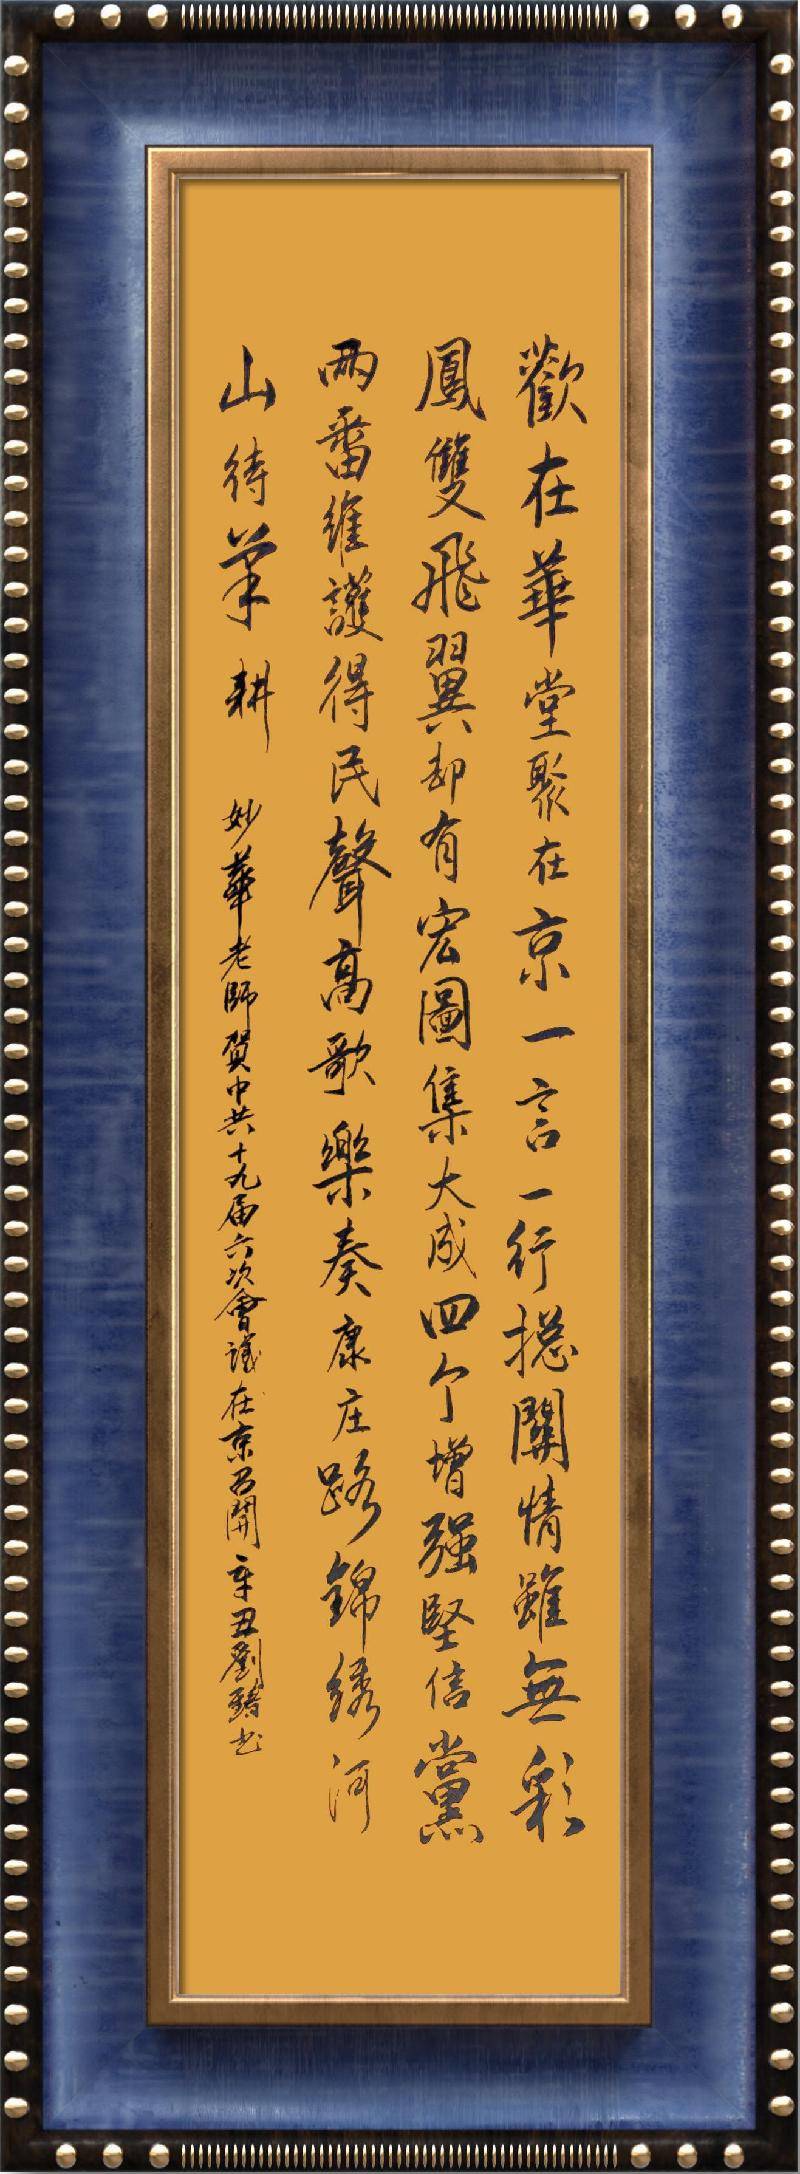 歡在華堂聚在京一言一行摠關情雖無彩
鳳雙飛翼却有宏圖集大成四个增强堅信黨
兩番維護得民聲高歌樂奏康庄路錦綉河
山待筆耕
妙華老師賀中共十九届六次會議在京召開辛丑劉書